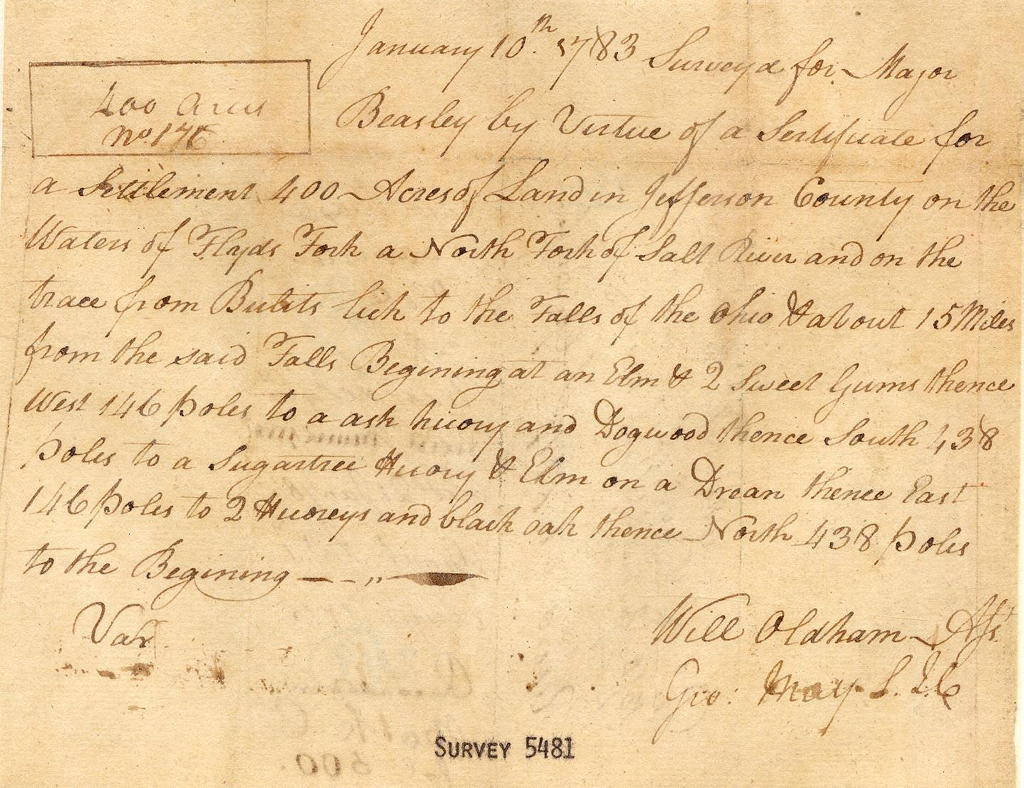 January 10th 1783 Surveyd for Major
400 Acres
No. 176
Beasley by Virtue of a Sertificate for
a Settlement 400 Acres of Land in Jefferson County on the
Waters of Floyds Fork a North Fork of Salt River and on the
trace from Bulits lick to the Falls of the Ohio & about 15 Miles
from the said Falls Begining at an Elm & 2 Sweet Gums thence
West 146 poles to a ash hicory and Dogwood thence South 438
poles to a Sugartree Hicory & Elm on a Drean thence East
146 poles to 2 Hicoreys and black oak thence North 438 poles
to the Begining
Var
Will Oldham Asst
Geo: May S. J. C
SURVEY 5481